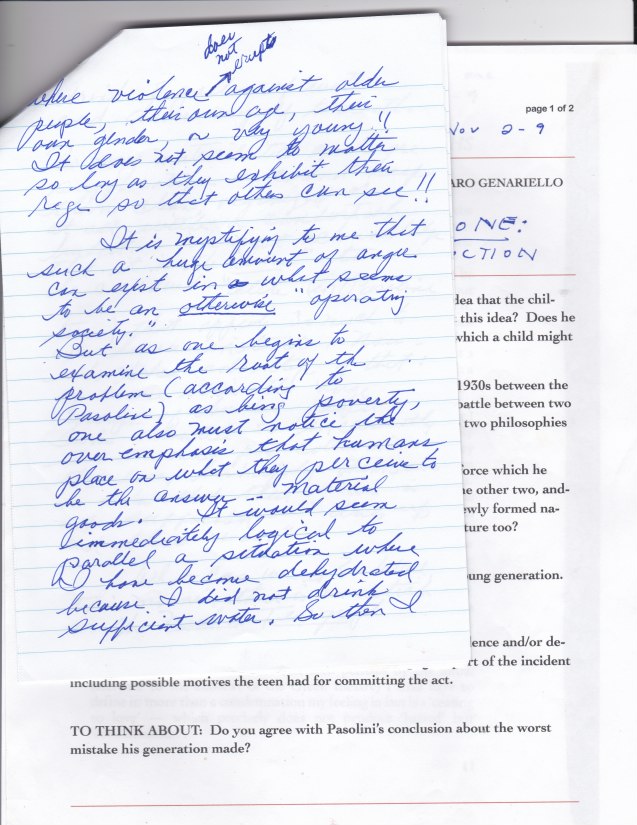 does
not
erupts
where violence against older
people, their own age, their
own gender, or very young!!
It does not seem to matter
so long as they exhibit their
rage so that others can see!!
It is mystifying to me that
such a huge amount of anger
can exist in what seems
to be an otherwise "operating
society."
But as one begins to
examine the root of th
problem (according to
Pasolini) as being poverty,
one also must notice the
over emphasis that humans
place on what they perceive to
be the answer -- material
goods. It would seem
immediately logical to
parallel a situation where
I have become dehydrated
because I did not drink
sufficient water. So then I
page 1 of 2
Nov 2-9
ARO GENARIELLO
ONE:
CTION
dea that the chil-
this idea? Does he
which a child might
1930s between the
battle between two
two philosophies
orce which he
he other two, and-
ewly formed na-
ture too?
ung generation.
lence and/or de-
rt of the incident
including possible motives the teen had for committing the act.
TO THINK ABOUT: Do you agree with Pasolini's conclusion about the worst
mistake his generation made?